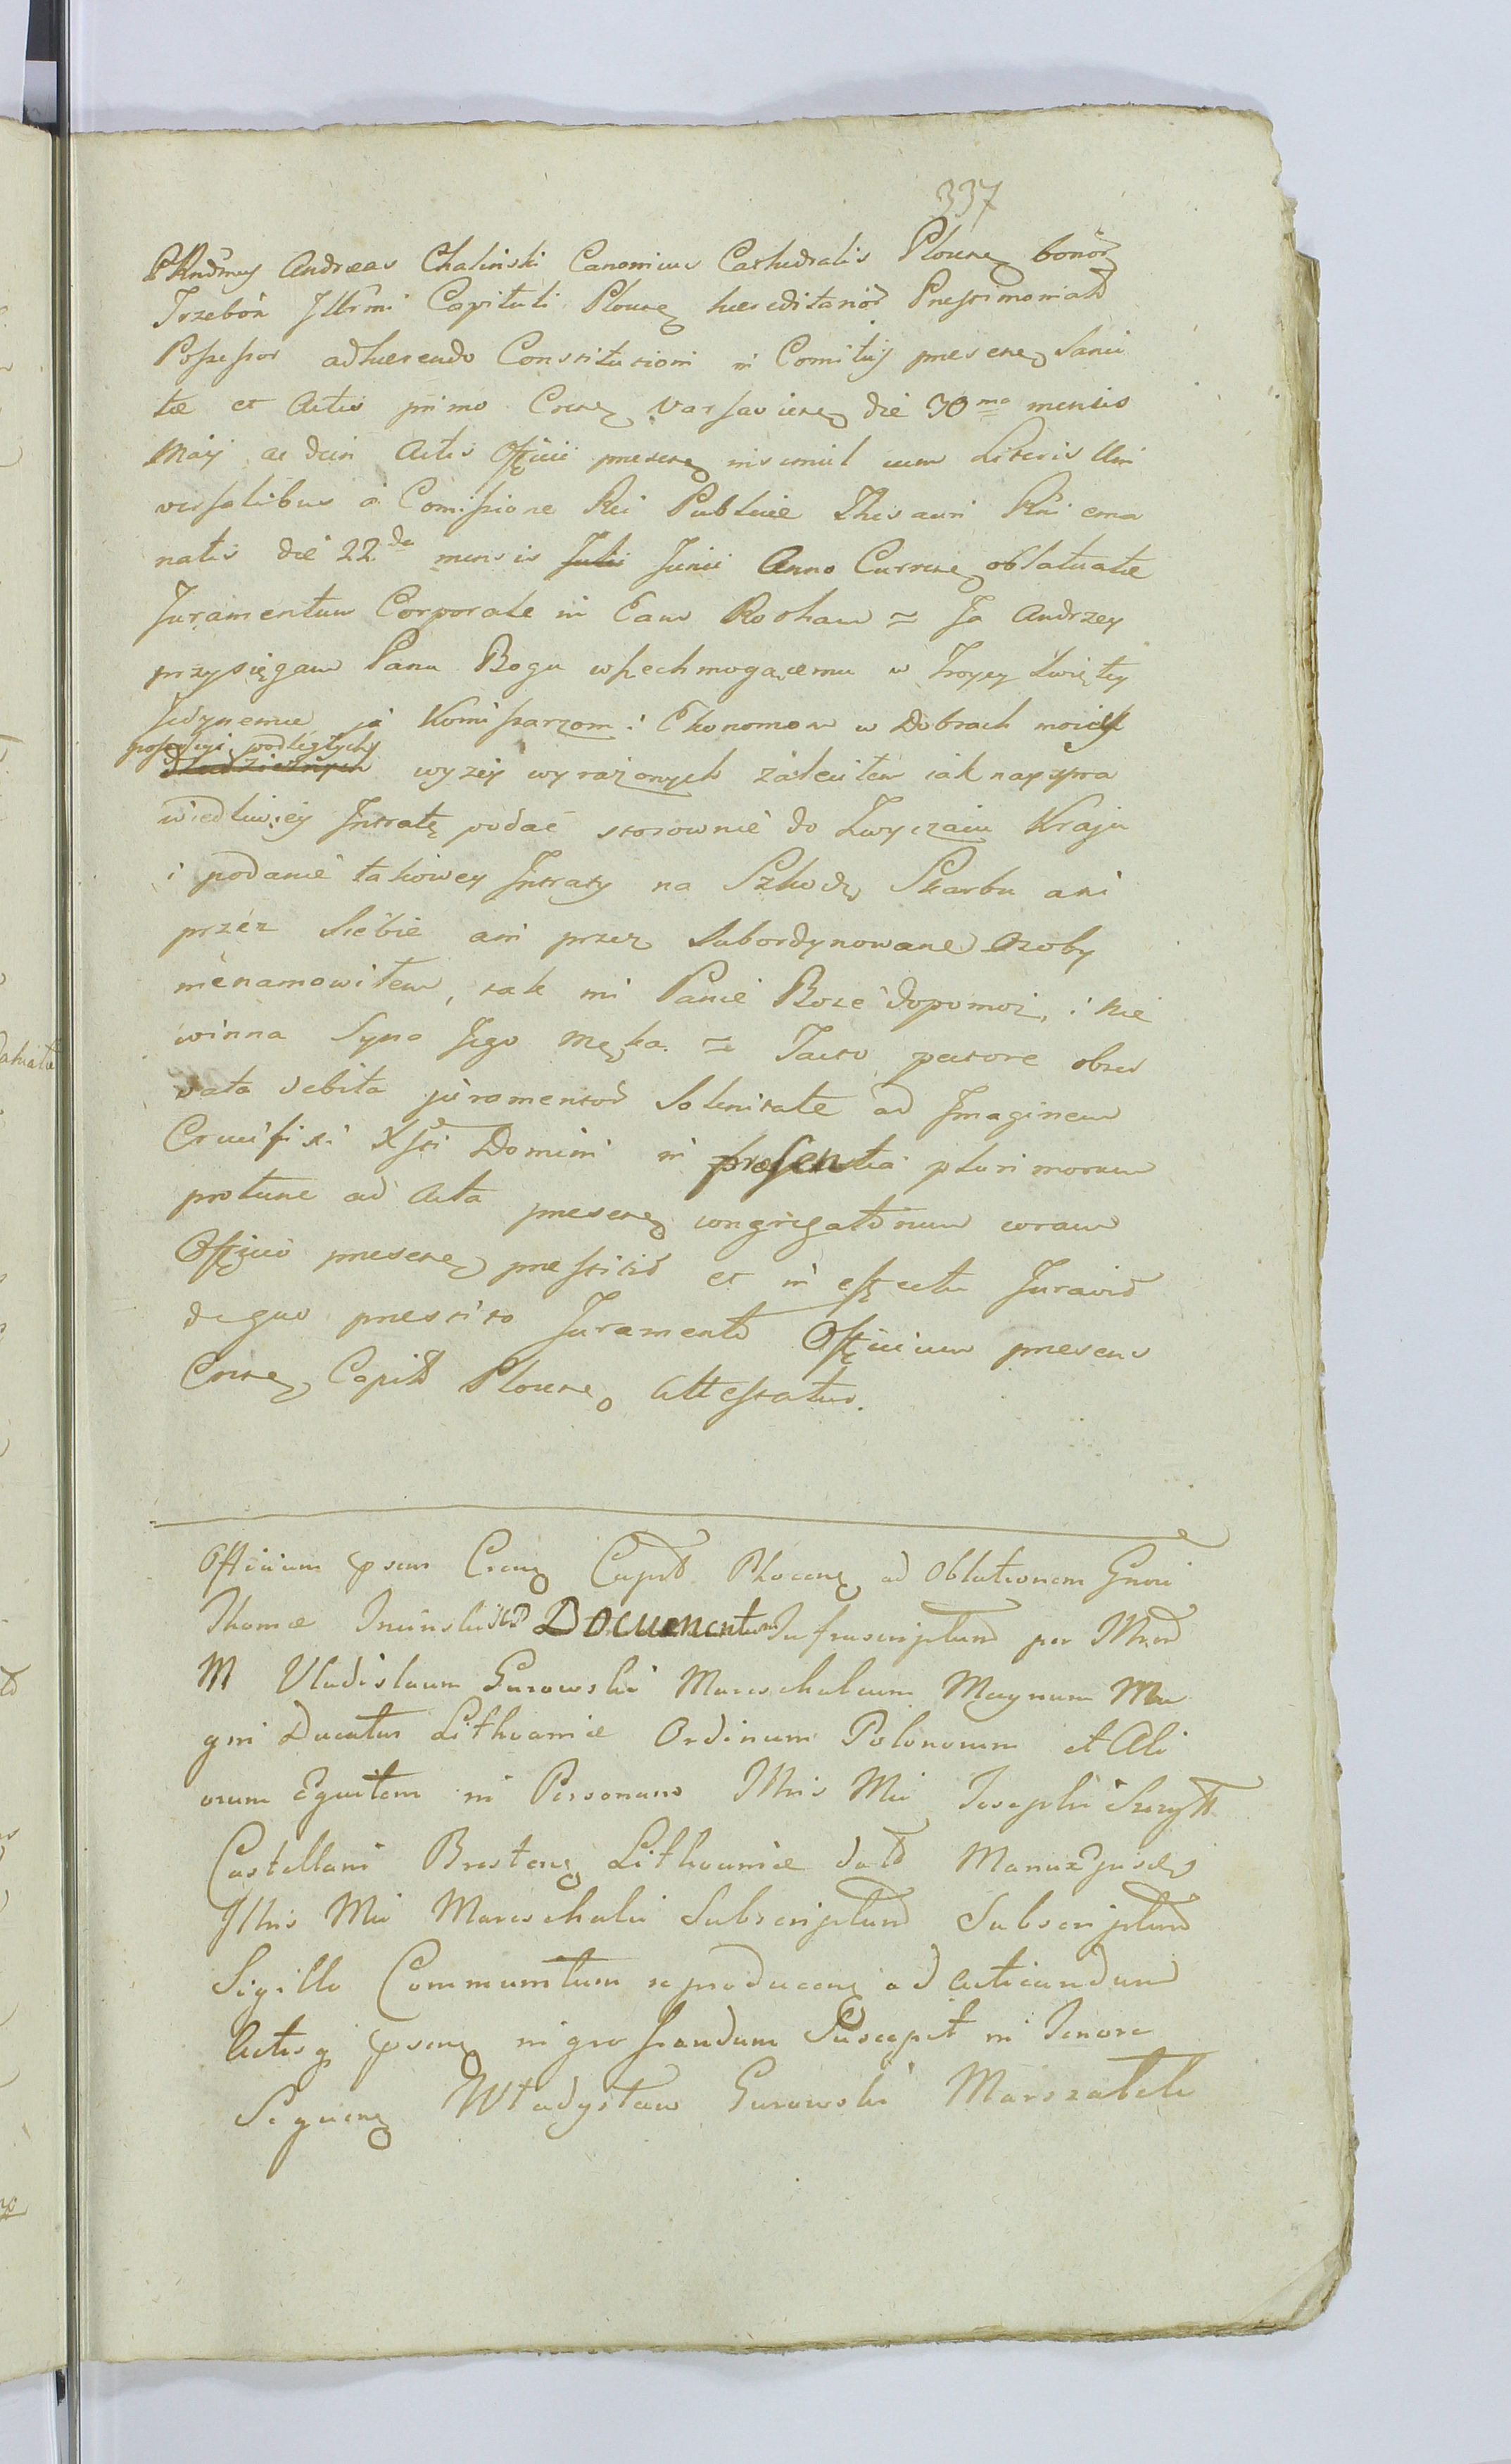 337
PRndmus Andreas Chaliński Canonicus Cathedralis Plocen bonor
Trzeboń Illrmi Capituli Plocen haereditarior Prestimonial
Possessor adhaerendo Constitutioni in Comitijs presen Sanci
tae et Actis primo Cren Varsavien die 30ma mensis
Maij ac dein Actis Officii presen insimul cum Literis Uni
versalibus a Comissione Rei Publicae Thesauri Rni ema
natis die 22da mensis Julii Junii Anno Curren oblatuatae
Juramentum Corporale in Eam Rotham = Ja Andrzey
przysięgam Panu Bogu wszechmogącemu w Troycy Świętey
Jedynemu ja Komissarzom i Ekonomom w Dobrach moich
possessyi podległych
dziedzicznych wyzey wyrażonych zaleciłem iak nayspra
wiedliwiey Intratę podać stosownie do Zwyczaiu Kraju
i podanie takowey Intraty na Szkodę Skarbu ani
przez Siebie ani przez Subordynowane Osoby
nienamowiłem, tak mi Panie Boze dopomoż, i nie
winna Syna Jego Męka = Tacto pectore obser
vata debita juramentor Solenitate ad Imaginem
Crucifixi Xsti Domini in praesentia plurimorum
protunc ad Acta presen congregatorum coram
Officio presen prestitit et in effectu Juravit
de quo prestito Juramento Officium presens
Cren Capit Plocen Attestatur.
Officium psens Cren Capit Plocen ad Oblationem Gnosi
Thomae Documentum Infrascriptum per Illrm
M Vladislaum Gurowski Mareschalcum Magnum Ma
gni Ducatus Lithvaniae Ordinum Polonorum et Ali
orum Equitem in Personam Illris Mci Josephi Szczytt
Castellani Bresten Lithvaniae dat Manu
Illris Mci Mareschalci Subscriptum Subscriptum
Sigillo Communitum reproducen ad acticandum
Actisq psen ingrossandum Suscepit in Tenore
Sequen Władysław Gurowski Marszałek